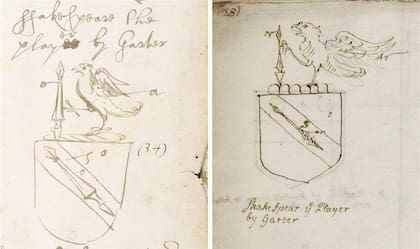 Shakespeare the
player by Garter
(34)
Shakespear ye Player
by Garter